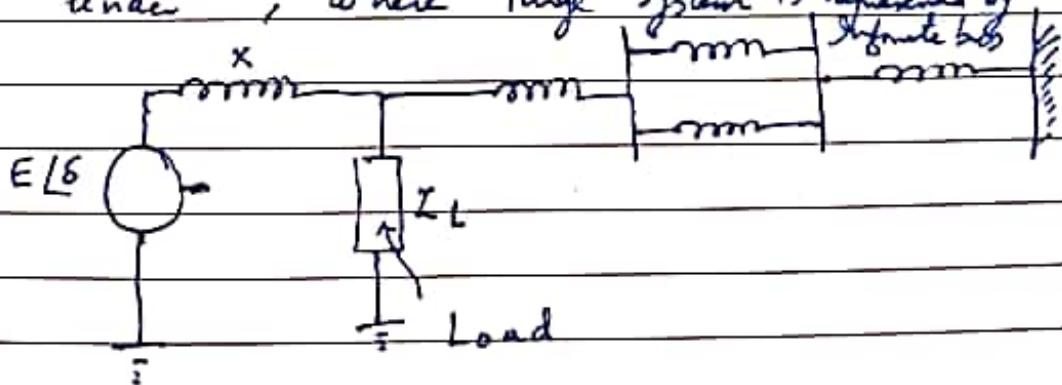 under, where large system is represented by
Infinite bus
X
E∠δ
Z L
Load